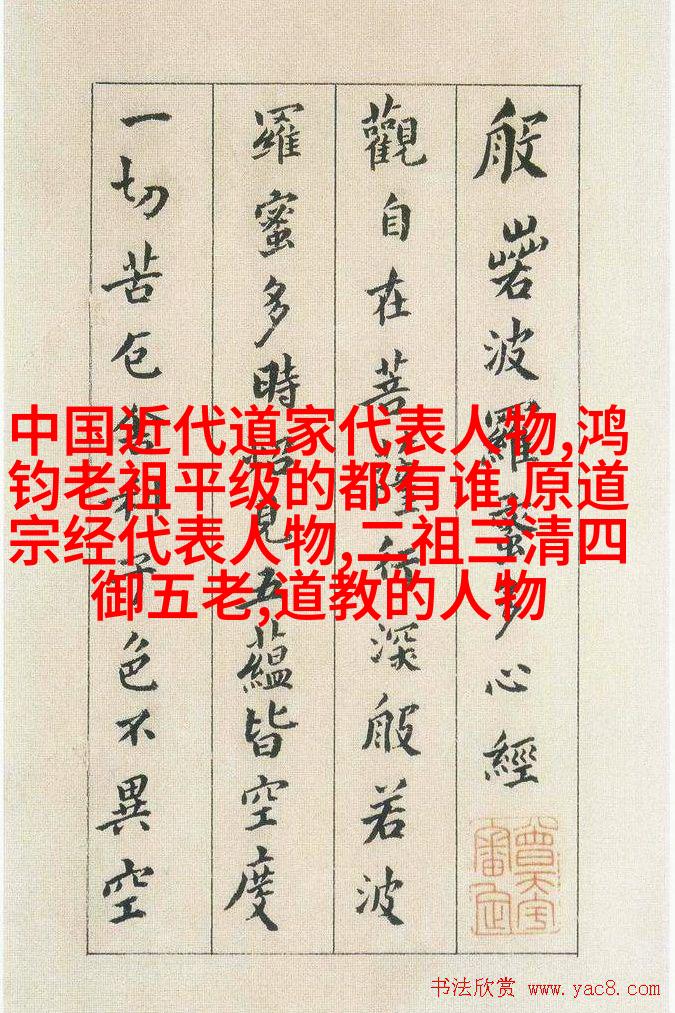 般若波羅蜜多心經
觀自在菩薩行深般若波
羅蜜多時照見五蘊皆空度
一切苦厄舍利子色不異空
中国近代道家代表人物,鸿
钧老祖平级的都有谁,原道
宗经代表人物,二祖三清四
御五老,道教的人物
书法欣赏 www.yac8.com